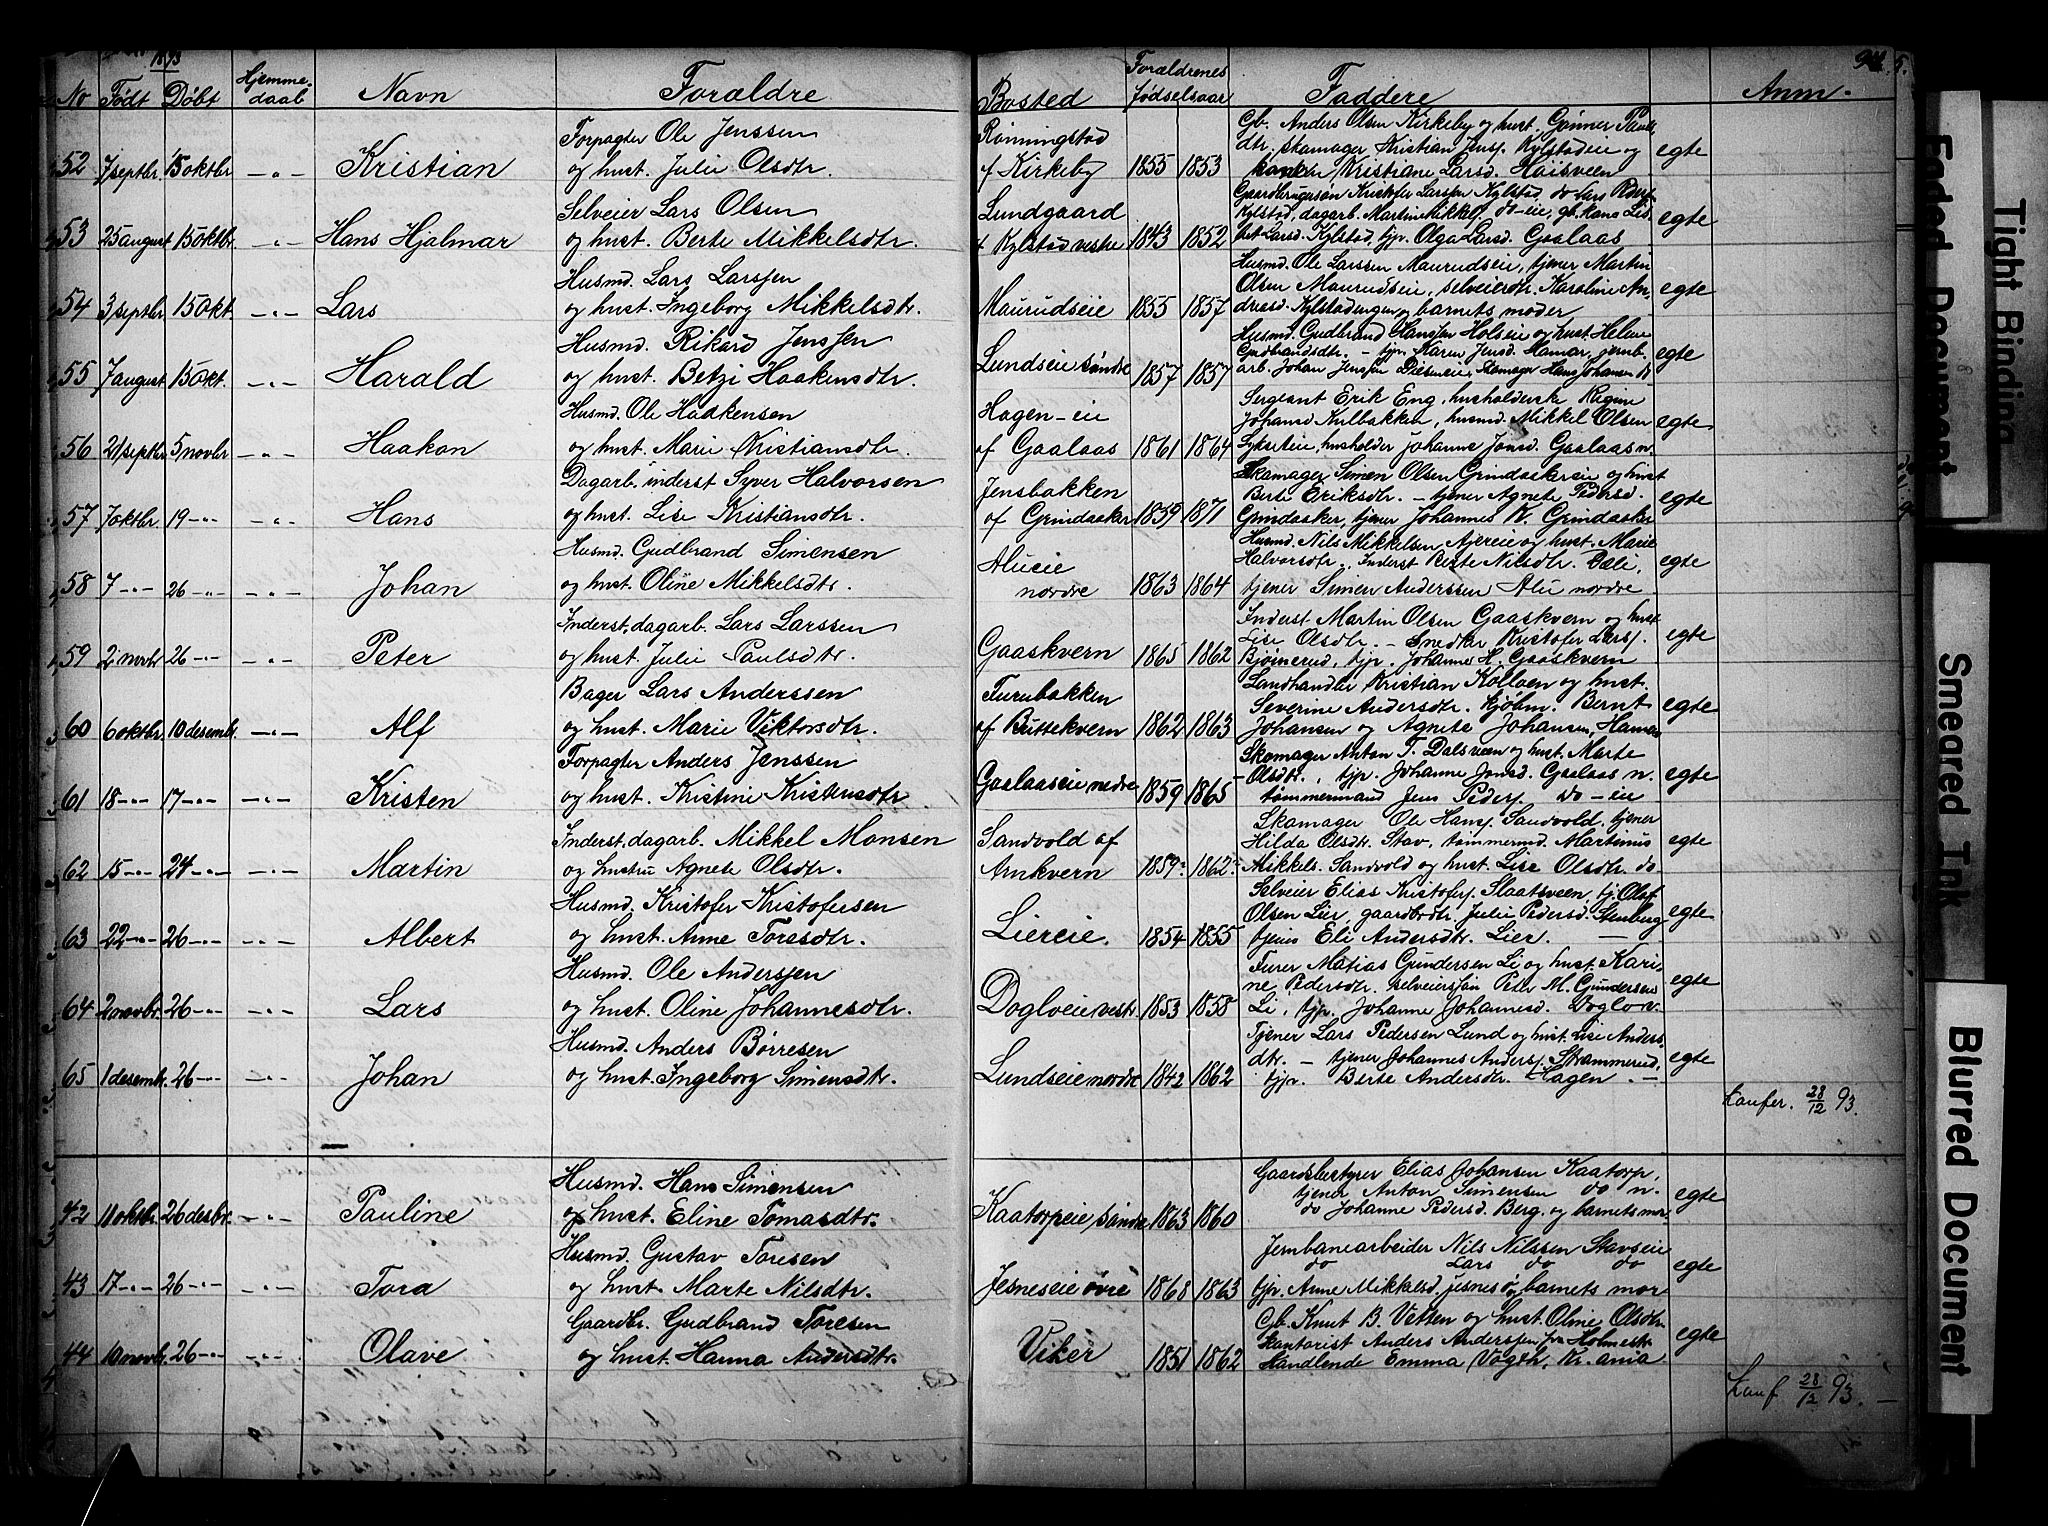 1893
No Født Døbt Hjemmedaab Navn Forældre Bosted Forældrenes fødselsaar Faddere Anm.
Forpagter Ole Jenssen
52 7 septbr 15 oktbr — " — Kristian og hust. Julie Olsdtr.
Selveier Lars Olsen
53 25 august 15 oktbr. — " — Hans Hjalmar og hust. Berte Mikkelsdtr.
Husmd. Lars Larssen
54 3 septbr 15 Okt. — " — Lars og hust. Ingeborg Mikkelsdtr.
Husmd. Rikard Jenssen
55 7 august 15 Okt. — " — Harald og hust. Betzi Haakensdtr.
Husmd. Ole Haakensen
56 21 septbr 5 novbr — " — Haakon og hust. Marie Kristiansdtr.
Dagarb. inderst Syver Halvorsen
57 7 oktbr 19 — " — — " — Hans og hust. Lise Kristiansdtr.
Husmd. Gudbrand Simensen
58 7 — " — 26 — " — — " — Johan og hust. Oline Mikkelsdtr.
Inderst, dagarb. Lars Larssen
59 2 novbr 26 — " — — " — Peter og hust. Julie Paulsdtr.
Bager Lars Anderssen
60 6 oktbr. 10 desembr. — " — Alf og hust. Marie Viktorsdtr.
Forpagter Anders Jenssen
61 18 — " — 17 — " — — " — Kristen og hust. Kristine Kristiansdtr.
Inderst, dagarb. Mikkel Monsen
62 15 — " — 24 — " — — " — Martin og hustru Agnete Olsdtr.
Husmd. Kristofer Kristofersen
63 22 — " — 26 — " — — " — Albert og hust. Anne Toresdtr.
Husmd. Ole Anderssen
64 2 novbr. 26 — " — — " — Lars og hust. Oline Johannesdtr.
Husmd. Anders Børresen
65 1 desembr. 26 — " — — " — Johan og hust. Ingeborg Simensdtr.
Husmd. Hans Simensen
42 11 oktbr. 26 desbr. — " — Pauline og hust. Eline Tomasdtr.
Husmd. Gustav Toresen
43 17 — " — 26 — " — — " — Tora og hust. Marte Nilsdtr.
Gaardbr. Gudbrand Toresen
44 10 novbr. 26 — " — — " — Olave og hust. Hanna Andersdtr.
Rønningstad
af Kirkeby 1855 1853
Gb. Anders Olsen Kirkeby og hust. Gønner Pauls
dtr. skomager Kristian Jensf. Kylstadeie og
Kristiane Larsd. egte
Lundgaard
af Kylstad vestre 1843 1852
Gaardbrugersøn Kristofer Larssen Kylstad, do Lars Peders.
Kylstad, dagarb. Martin Mikkels. do-eie, gb. kone Lis-
bet Larsd. Kylstad, tjp. Olga Larsd. Gaalaas egte
Maurudseie 1855 1857
Husmd. Ole Larssen Maurudseie, tjener Martin
Olsen Maurudseie, selveierdtr. Karoline An-
dersd. Kylstadengen og barnets moder egte
Lundseie søndre 1857 1857
Husmd. Gudbrand Hanssen Holseie og hust. Helene
Gudbrandsdtr. — tjp. Karen Jensd. Hamar, jernb.
arb. Johan Jenssen Dælseneie, Skomager Hans Johansen do egte
Hagen-eie
af Gaalaas 1861 1864
Sergeant Erik Eng, husholderske Regine
Johansd. Kulbakken, husmd. Mikkel Olsen
husholder Johanne Jonsd. Gaalaas n. egte
Jensbakken
af Grindaaker 1859 1871
Skomager Simen Olsen Grindaakereie og hust
Berte Eriksdtr. — tjener Agnete Pedersd.
Grindaaker, tjener Johannes K. Grindaaker egte
Alueie
nordre 1863 1864
Husmd. Nils Mikkelsen Ajereie og hust. Marie
Halvorsdtr. Inderst Berte Nilsdtr. Dæli,
tjener Simen Anderssen Alu nordre. egte
Gaaskvern 1865 1862
Inderst Martin Olsen Gaaskvern og hust
Lise Olsdtr. — Snedker Kristofer Larsf.
Bjørnerud, tjp. Johanne H. Gaaskvern egte
Furubakken
af Buttekvern 1862 1863
Landhandler Kristian Kolloen og hust.
Severine Andersdtr. Kjøbm. Bernt
Johansen og Agnete Johansen, Hamar egte
Gaalaaseie nedre 1859 1865
Skomager Anton T. Dalsveen og hust. Marte
Olsdtr., tjp. Johanne Jonsd. Gaalaas n.
tømmermand Jens Peders. do-eie egte
Sandvold af
Arnkvern 1859 1862
Skomager Ole Hansf. Sandvold, tjener
Hilda Olsdtr. Stav, tømmermd. Martinus
Mikkels. Sandvold og hust. Lise Olsdtr. do egte
Liereie. 1854 1855
Selveier Elias Kristofers. Slaatsveen, tj. Oluf
Olsen Lier, gaardbrdtr. Julie Pedersd. Stenberg
tjenes Eli Andersdtr. Lier. — egte
Dogloeie vestr. 1853 1858
Furer Matias Gundersen Li og hust. Kari-
ne Pedersdtr. Selveiersøn Peter M. Gundersen
Li, tjp. Johanne Johannesd. Doglo v. egte
Lundseie nordre 1842 1862
Tjener Lars Pedersen Lund og hust. Lise Anders-
dtr. — tjener Johannes Andersf. Skrammerud,
tjp. Berte Andersdtr. Hagen. — egte
Konfer. 28/12 93.
Kaatorpeie, søndre 1863 1860
Gaardsbestyrer Elias Johansen Kaatorp,
tjener Anton Simensen do n.
do Johanne Pedersd. Berg, og barnets mor egte
Jesneseie øvre 1868 1863
Jernbanearbeider Nils Nilssen Stavseie
do Lars do do
tjp. Anne Mikkelsd. Jesnes ø, barnets mor egte
Viker 1851 1862
Gb. Knut B. Vetten og hust. Oline Olsdtr.
Kontorist Anders Anderssen fra Holmestr.
Handlende Emma Vogth, Kr. ania egte
Konf 28/12 93. —
Faded Document
Tight Binding
Smeared Ink
Blurred Document